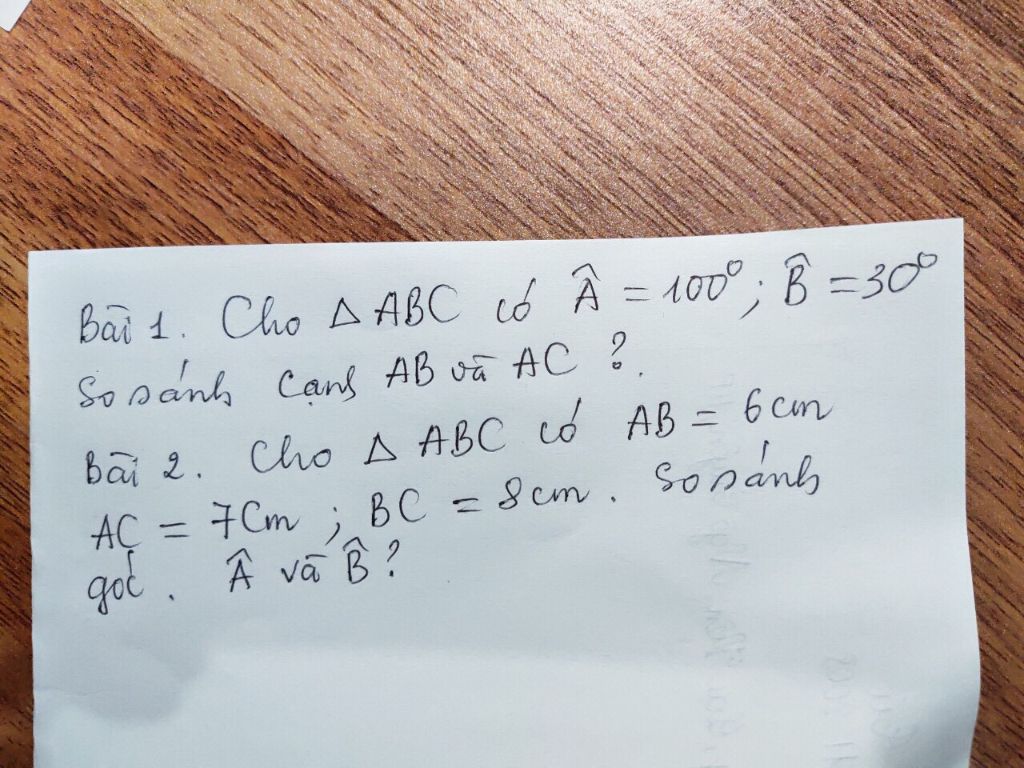 Bài 1. Cho △ ABC có Â = 100°; B̂ = 30°
So sánh cạnh AB và AC ?.
Bài 2. Cho △ ABC có AB = 6cm
AC = 7cm ; BC = 8cm. So sánh
góc. Â và B̂ ?